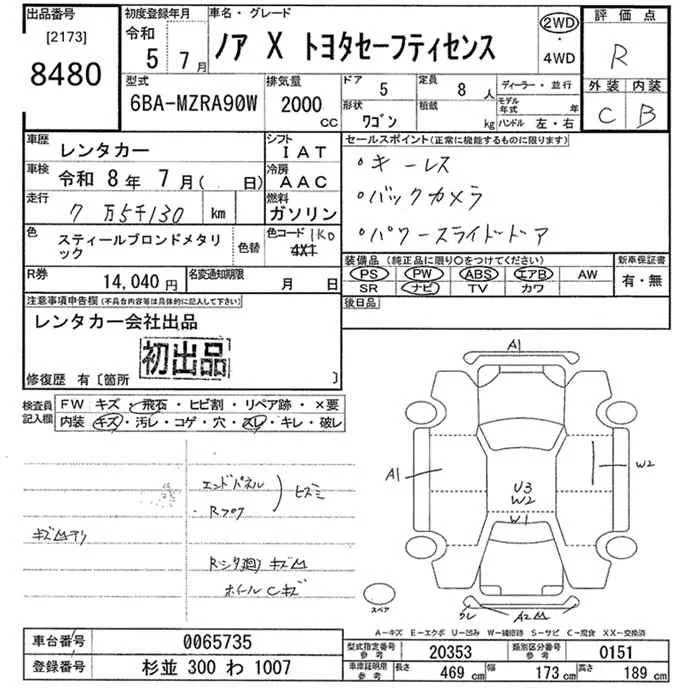 出品番号
[2173]
8480
初度登録年月
令和
5 7月
車名・グレード
ノア X トヨタセーフティセンス
2WD
・
4WD
評価点
R
外装 内装
C B
型式
6BA-MZRA90W
排気量
2000
CC
ドア 5
定員 8 人
形状 ワゴン
積載 kg
ディーラー・並行
モデル年式 年
ハンドル 左・右
車歴 レンタカー
シフト IAT
車検 令和 8年 7月( 日)
冷房 AAC
走行 7万5千130 km
燃料 ガソリン
色 スティールブロンドメタリック
色替
色コード 1K0
4X1
R券 14,040円
名変通知期限 月 日
セールスポイント(正常に機能するものに限ります)
・キーレス
・バックカメラ
・パワースライドドア
装備品(純正品に限り○をつけてください)
PS PW ABS エアB AW
SR ナビ TV カワ
新車保証書
有・無
後日品
注意事項申告欄(不具合内容等は具体的に記入して下さい)
レンタカー会社出品
初出品
修復歴 有〔箇所 〕
検査員記入欄
FW キズ・飛石・ヒビ割・リペア跡・×要
内装 キズ・汚レ・コゲ・穴・スレ・キレ・破レ
エンドパネル
Rフロア
ヒズミ
ホイールCキズ
A1
A1
W2
U3
W2
W1
A2
スペア
A－キズ E－エクボ U－凹み W－補修跡 S－サビ C－腐食 XX－交換済
車台番号 0065735
登録番号 杉並 300 わ 1007
型式指定番号 参考 20353
類別区分番号 参考 0151
車庫証明用 参考 長さ 469 cm 幅 173 cm 高さ 189 cm